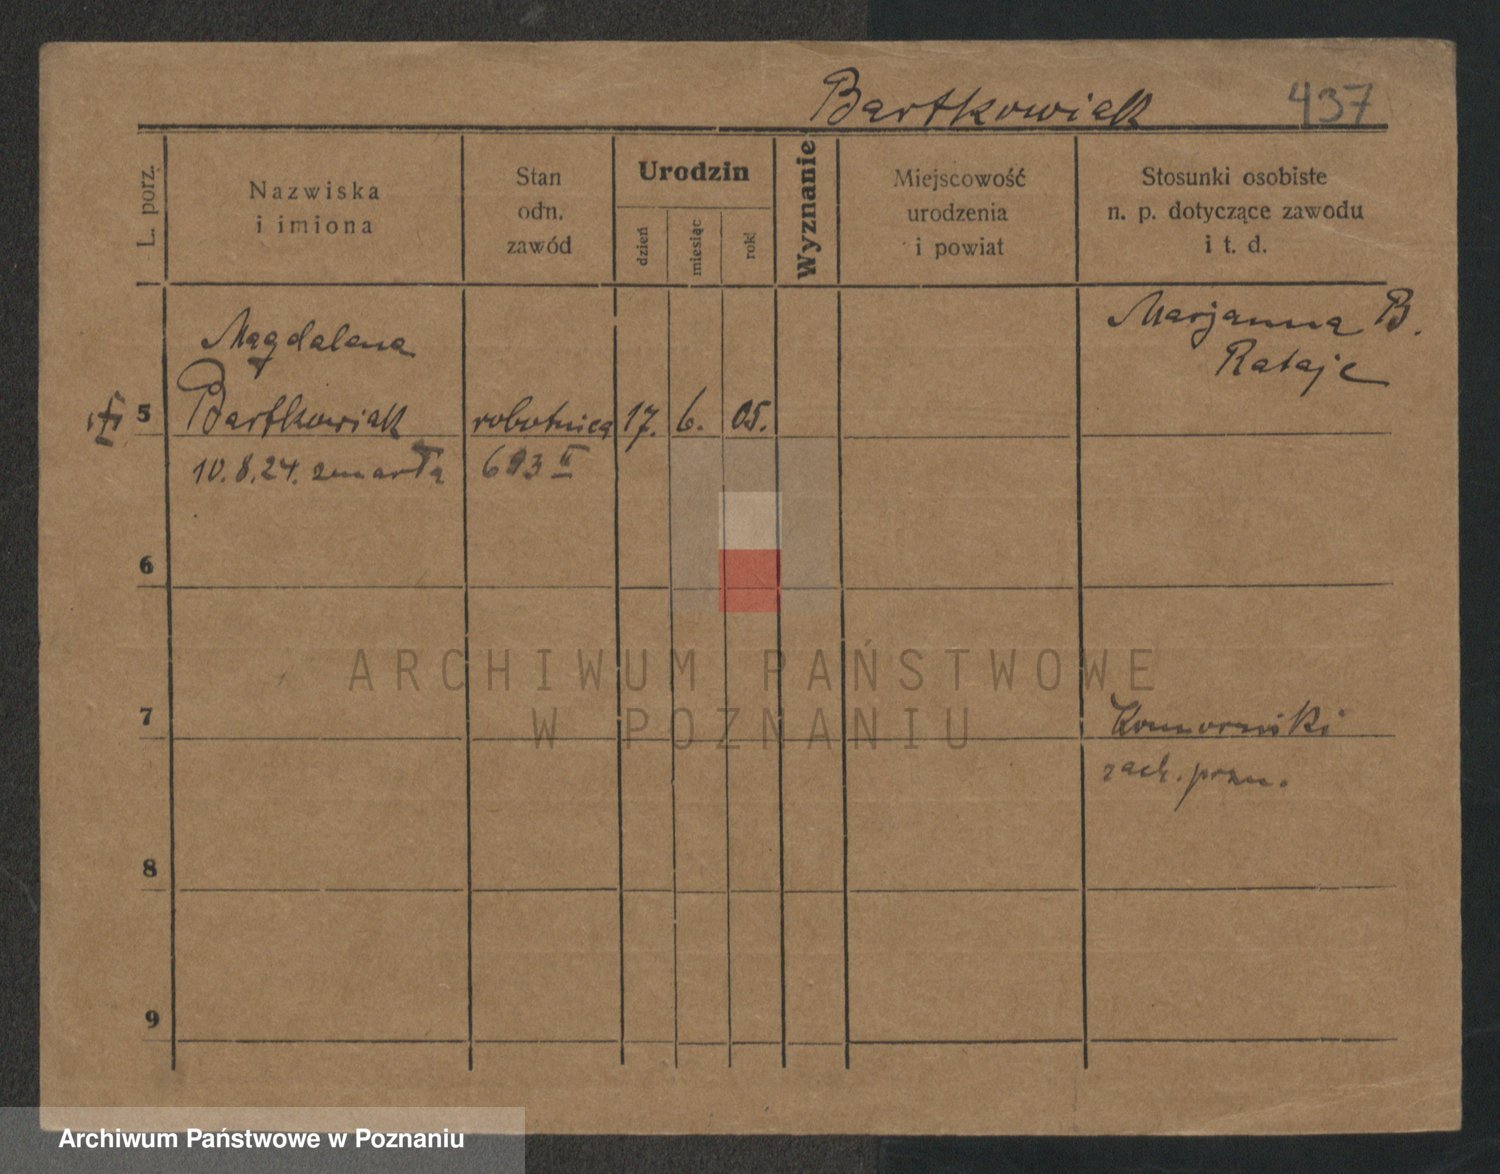 Bartkowiak 437
L. porz.
Nazwiska
i imiona
Stan
odn.
zawód
Urodzin
dzień
miesiąc
rok
Wyznanie
Miejscowość
urodzenia
i powiat
Stosunki osobiste
n. p. dotyczące zawodu
i t. d.
Magdalena
Marjanna B.
Rataje
5 Bartkowiak robotnica 17. 6. 05.
10.8.24. zmarła 693 II
6
7
8
9
ARCHIWUM PAŃSTWOWE
W POZNANIU
Archiwum Państwowe w Poznaniu